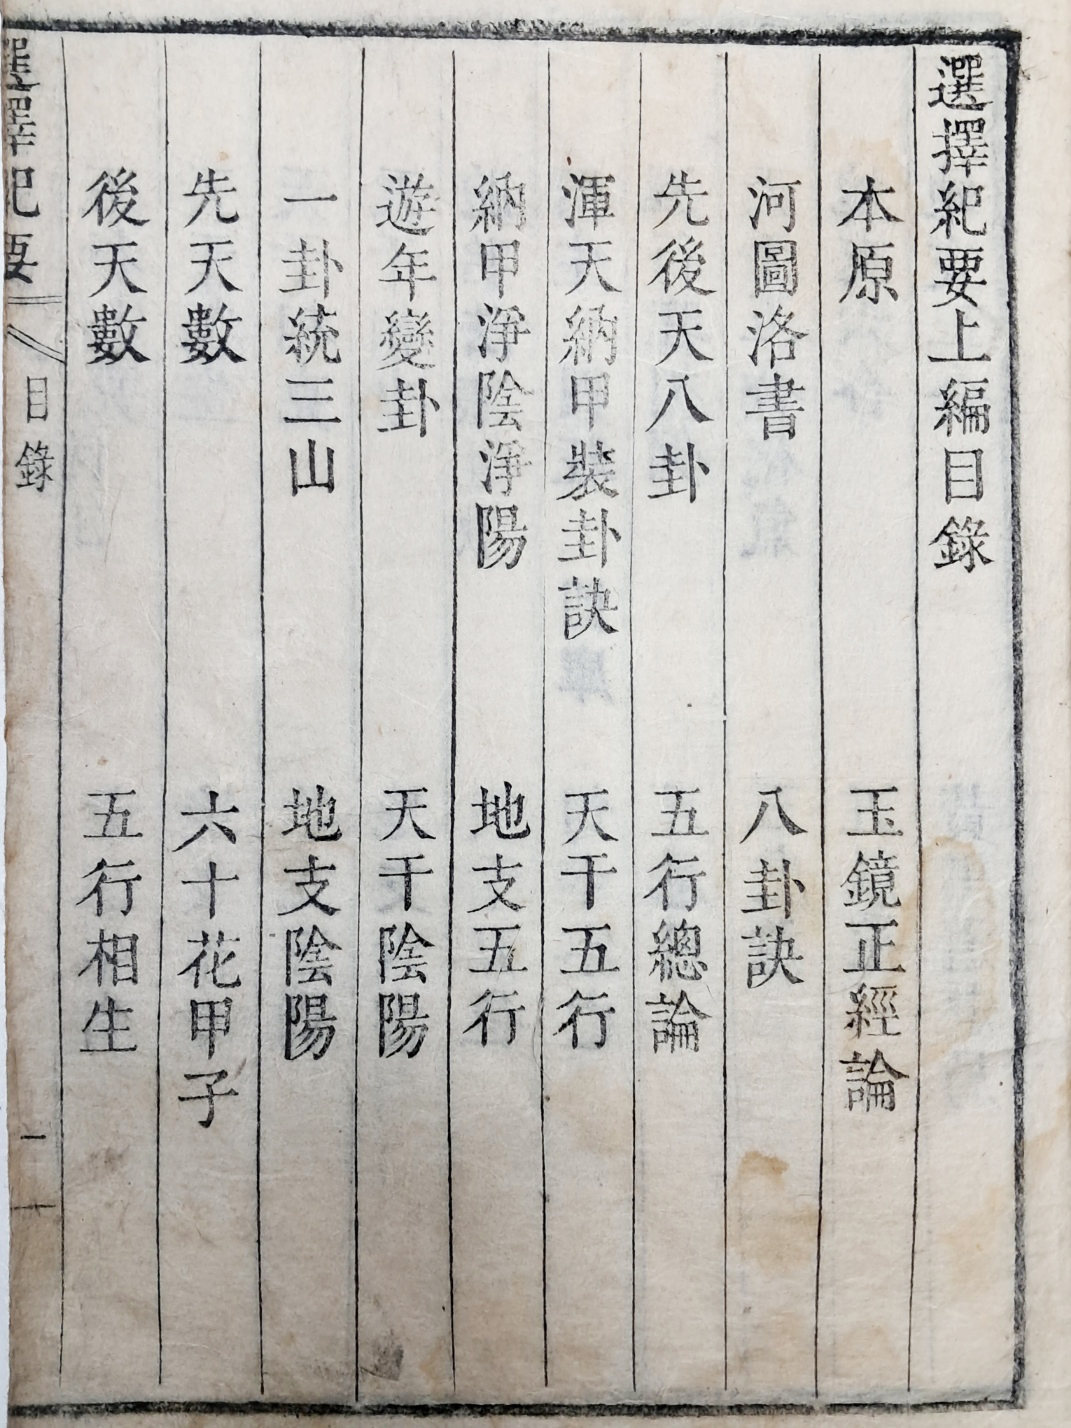 選擇紀要上編目錄
本原　玉鏡正經論
河圖洛書　八卦訣
先後天八卦　五行總論
渾天納甲裝卦訣　天干五行
納甲淨陰淨陽　地支五行
遊年變卦　天干陰陽
一卦統三山　地支陰陽
先天數　六十花甲子
後天數　五行相生
選擇紀要　目錄　一